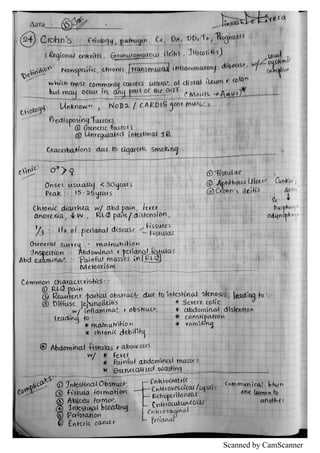 Data:
(24) Crohn's : Etiology, pathogn, Cx, Dx, DD, Tx, Prognosis
(Regional enteritis, Granulomatous ileitis, Ileocolitis)
Definition: Nonspecific, chronic, transmural inflammatory disease, w/ local systemic complic
which most commonly causes ulcerat. of distal ileum & colon
but may occur in any part of the GIT (Mouth → Anus)*
Etiology: Unknown, NOD2 / CARD15 gene mutat.
Predisposing factors:
① Genetic factors
② Unregulated intestinal IR
Exacerbations due to cigarette smoking
Clinic: ♂ > ♀
Onset usually < 30 years
Peak :- 15-25 years
① Fistular
② Aphthous Ulcer
③ Crohn's ileitis
Dysphagia
odynophagia
Chronic diarrhea w/ abd pain, fever
anorexia, ↓w, RLQ pain / distension,
1/3 :- Hx of perianal disease
Fissures
Fistulas
General survey - malnutrition
Inspection : Abdominal & perianal fistulas
Abd examinat : Painful masses in RLQ
Meteorism
Common characteristics :-
① RLQ pain
② Recurrent partial obstruct. due to intestinal stenosis, leading to :-
③ Diffuse Jejunoileitis
w/ inflammat. & obstruct.
leading to :
* malnutrition
* chronic debility
* severe colic
* abdominal distention
* constipation
* vomiting
④ Abdominal fistulas & abscesses
w/ * Fever
* Painful abdominal masses
* Generalised wasting
Complicats:
① Intestinal Obstruct
② Fistula formation
③ Abscess former
④ Intestinal bleeding
⑤ Perforation
⑥ Enteric cancer
Enteroenteric
Enterovesical / cystic
Retroperitoneal
Enterocutaneous
Enterovaginal
Perianal
Communicat. btwn
one lumen to
another
Scanned by CamScanner